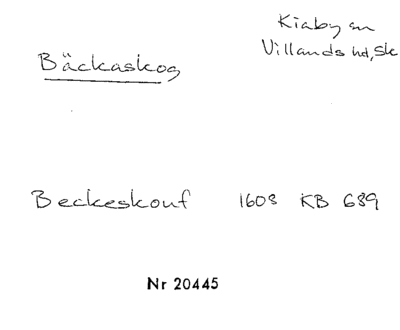 Kiaby sn
Villands hd, Sk
Bäckaskog
Beckeskouf 1608 KB 689
Nr 20445